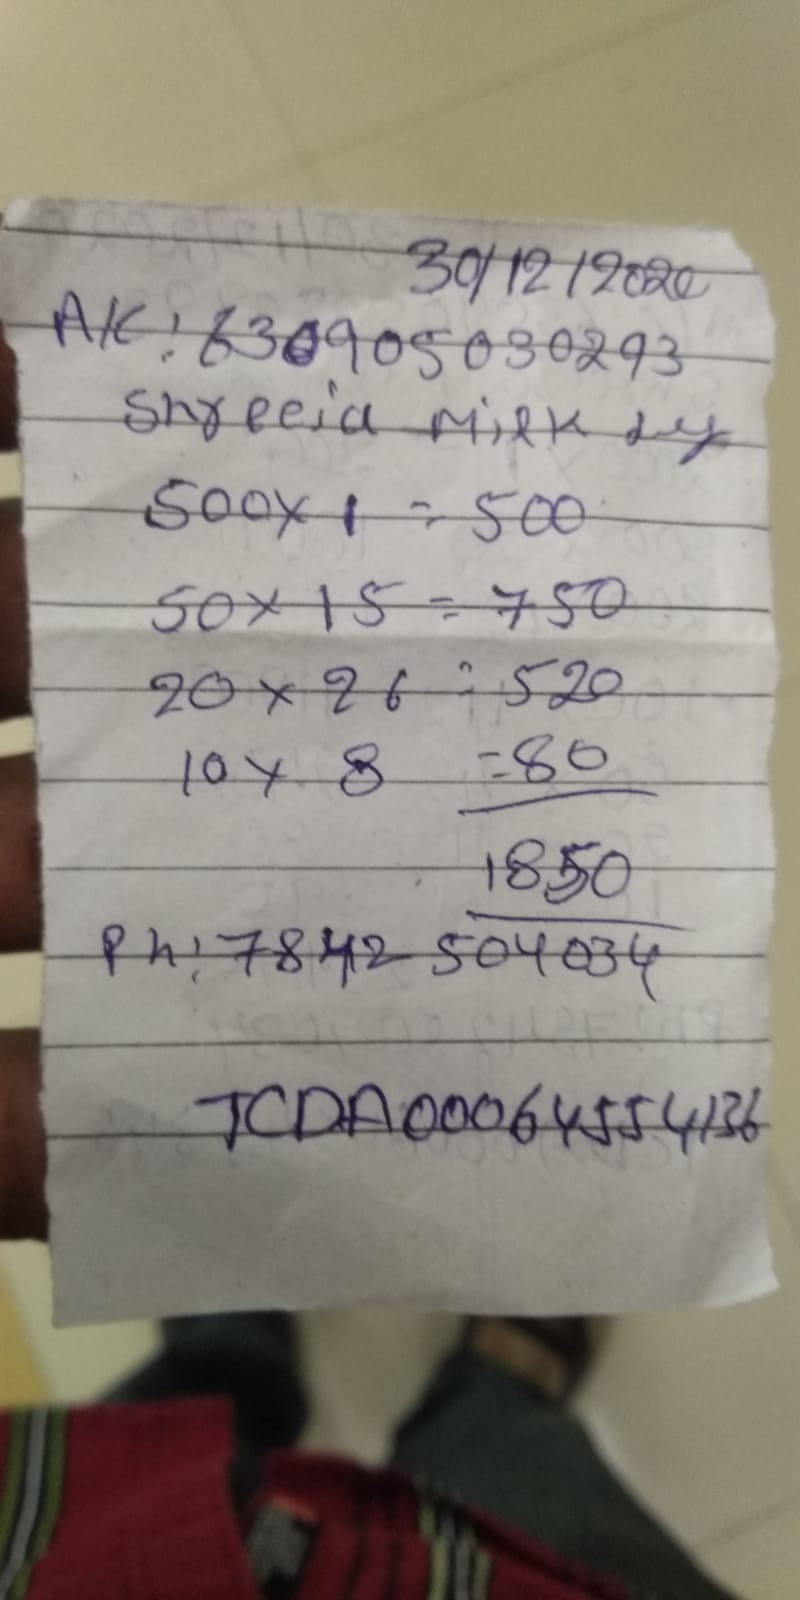 30/12/2020
A/C: 630905030293
Milk
500 x 1 = 500
50 x 15 = 750
20 x 26 = 520
10 x 8 = 80
1850
Ph: 7842 504034
JCDA00064554136